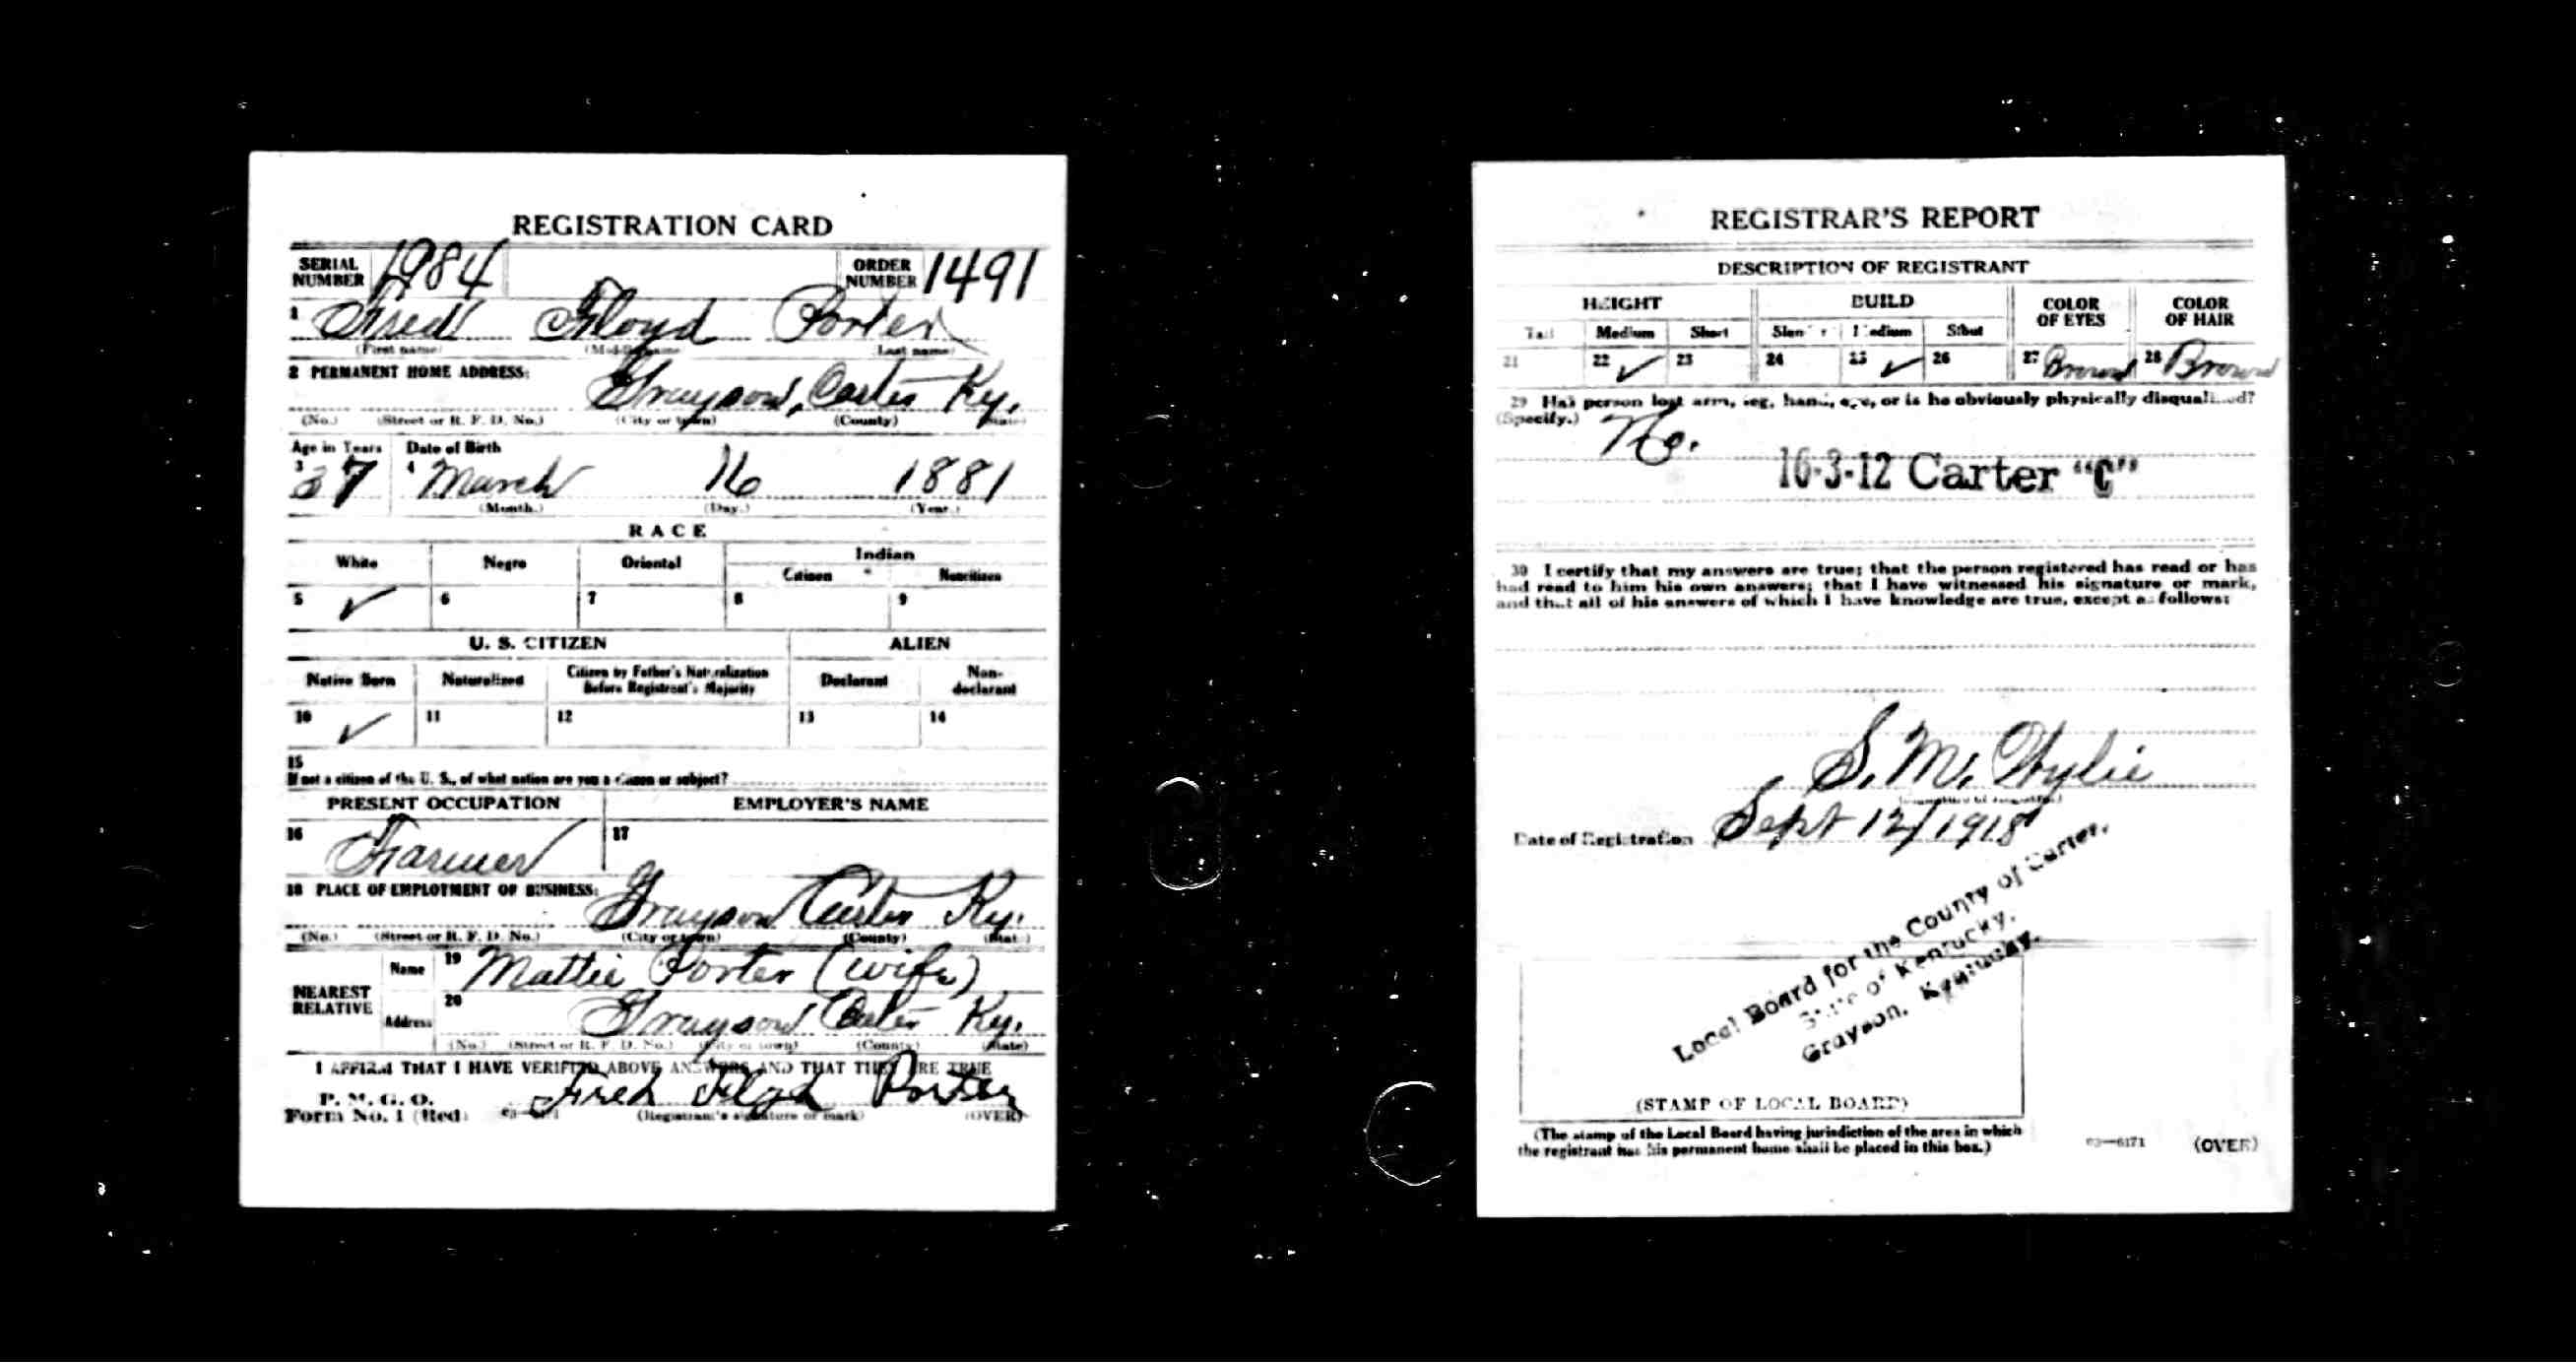 REGISTRATION CARD
SERIAL NUMBER 1984 ORDER NUMBER 1491
1 Fred Floyd Porter
(First name) (Middle name) (Last name)
2 PERMANENT HOME ADDRESS:
Grayson, Carter Ky.
(No.) (Street or R. F. D. No.) (City or town) (County) (State)
Age in Years Date of Birth
3 37 4 March 16 1881
(Month.) (Day.) (Year.)
RACE
White Negro Oriental Indian
Citizen Noncitizen
5 ✓ 6 7 8 9
U. S. CITIZEN ALIEN
Native Born Naturalized Citizen by Father's Naturalization Before Registrant's Majority Declarant Non-declarant
10 ✓ 11 12 13 14
15
If not a citizen of the U. S., of what nation are you a citizen or subject?
PRESENT OCCUPATION EMPLOYER'S NAME
16 Farmer 17
18 PLACE OF EMPLOYMENT OR BUSINESS:
Grayson Carter Ky.
(No.) (Street or R. F. D. No.) (City or town) (County) (State)
NEAREST RELATIVE Name 19 Mattie Porter (wife)
Address 20 Grayson Carter Ky.
(No.) (Street or R. F. D. No.) (City or town) (County) (State)
I AFFIRM THAT I HAVE VERIFIED ABOVE ANSWERS AND THAT THEY ARE TRUE
P. M. G. O.
Form No. 1 (Red) Fred Floyd Porter
(Registrant's signature or mark) (OVER)
REGISTRAR'S REPORT
DESCRIPTION OF REGISTRANT
HEIGHT BUILD COLOR OF EYES COLOR OF HAIR
Tall Medium Short Slender Medium Stout
21 22 ✓ 23 24 25 ✓ 26 27 Brown 28 Brown
29 Has person lost arm, leg, hand, eye, or is he obviously physically disqualified?
(Specify.) No.
16-3-12 Carter "C"
30 I certify that my answers are true; that the person registered has read or has
had read to him his own answers; that I have witnessed his signature or mark,
and that all of his answers of which I have knowledge are true, except as follows:
S. M. Wylie
(Signature of Registrar)
Date of Registration Sept 12/1918
Local Board for the County of Carter,
State of Kentucky,
Grayson, Kentucky.
(STAMP OF LOCAL BOARD)
(The stamp of the Local Board having jurisdiction of the area in which
the registrant has his permanent home shall be placed in this box.)
03—6171 (OVER)